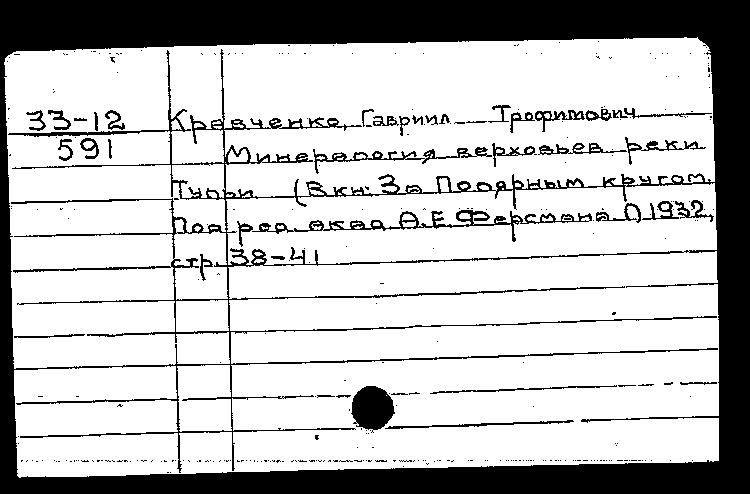 33-12 Кравченко, Гавриил Трофимович
591 Минералогия верховьев реки
Тульи (В кн: За Полярным кругом.
Под ред. акад А.Е. Ферсмана Л 1932,
стр. 38-41